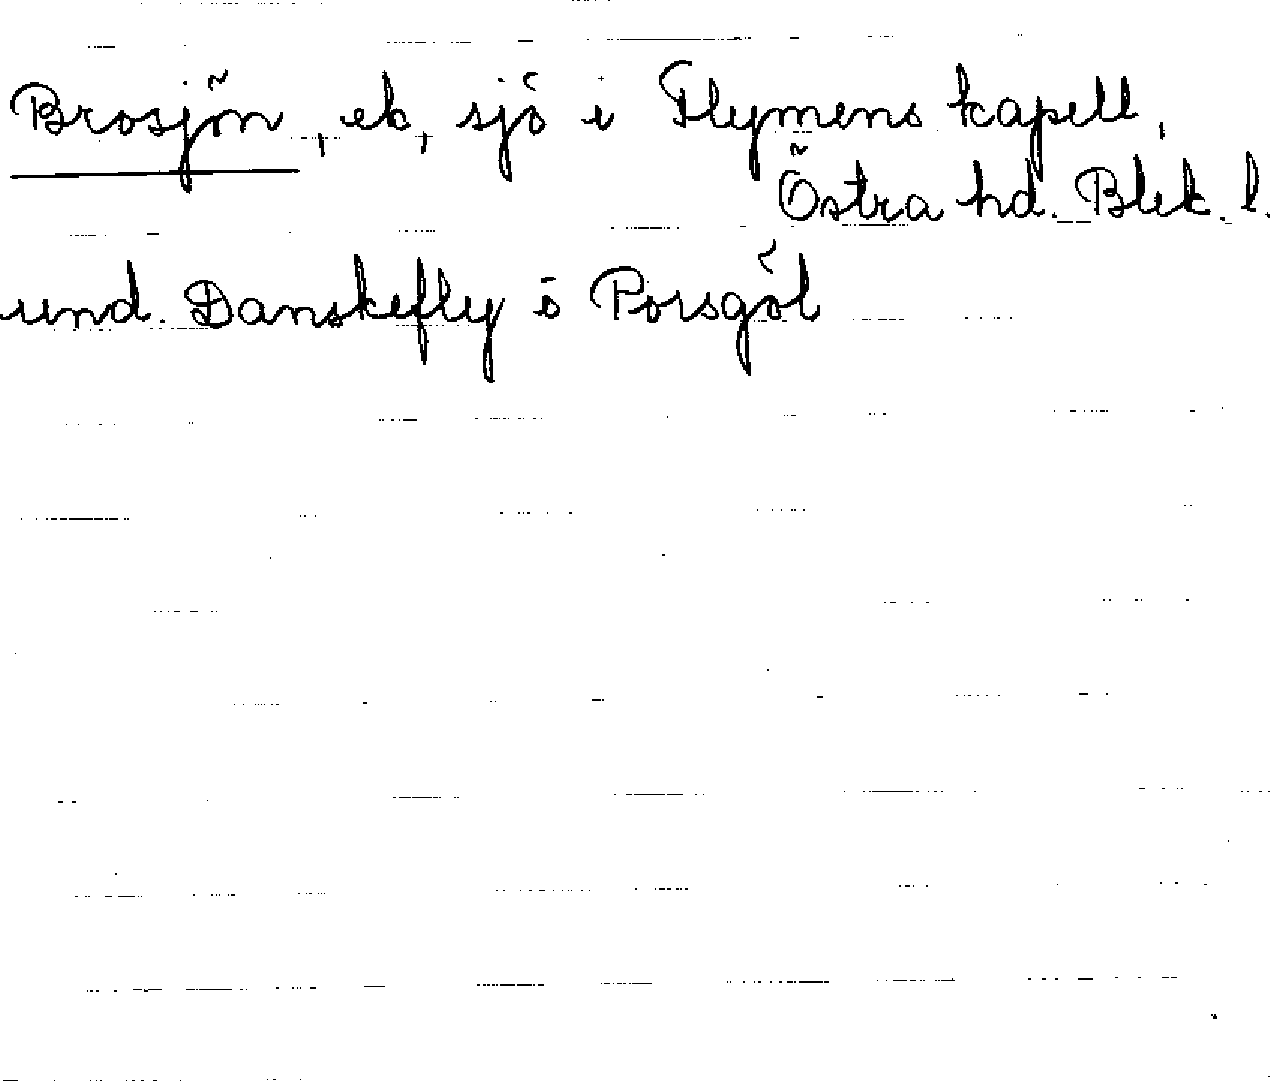 Brosjön, ek, sjö i Flymens kapell,
Östra hd. Blek. l.
und. Danskefly o Porsgöl